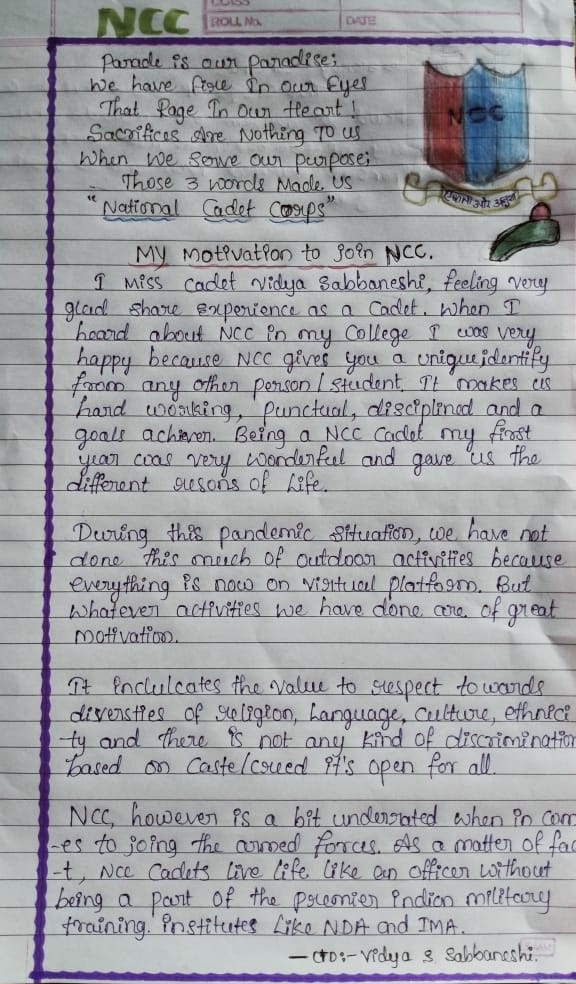 CLASS
NCC
ROLL No.
DATE
Parade is our paradise;
We have fire In our Eyes
That Rage In Our Heart!
Sacrifices Are Nothing TO us
When We Serve our purpose;
Those 3 words Made Us
"National Cadet Corps"
NCC
एकता और अनुशा
My Motivation to join NCC.
I Miss Cadet Vidya Sabbaneshi, feeling very
glad share experience as a Cadet. When I
heard about NCC in my College I was very
happy because NCC gives you a unique identify
from any other person/student. It makes us
hard working, punctual, disciplined and a
goals achiever. Being a NCC Cadet my first
year was very wonderful and gave us the
different resons of Life.
During this pandemic situation, we have not
done this much of outdoor activities because
everything is now on virtual platform. But
whatever activities we have done are of great
motivation.
It inclulcates the value to respect towards
diversties of religion, Language, Culture, ethnici
-ty and there is not any kind of discrimination
based on Caste/creed it's open for all.
NCC, however is a bit underrated when in com
-es to joing the armed forces. As a matter of fac
-t, NCC Cadets live life like an officer without
being a part of the premier indian military
training. institutes Like NDA and IMA.
— CDT:- Vidya S. Sabbaneshi.